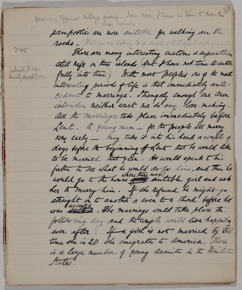 pampooties are more suitable for walking on the
rocks.
There are many interesting customs & superstitions
still rife on the islands but I have not time to enter
fully into them. With most peoples one of the most
interesting periods of life is that immediately ante-
cedent to marriage. Strangely enough the Aran
islanders neither court nor do any love making
All the marriages take place immediately before
Lent. A young man – for the people do marry
very early – may take it into his head a couple of
days before the beginning of Lent that he would like
to be married that year. He would speak to his
father to see what he would do for him, and then he
would go to the house of suitable girl and ask
her to marry him. If she refused he might go
straight on to another & even to a third before he
was accepted. The marriage would take place the
following day and the couple would live happily
ever after. If a girl is not married by the
time she is 20 she emigrates to America. There
is a large number of young Aranites in the United
States